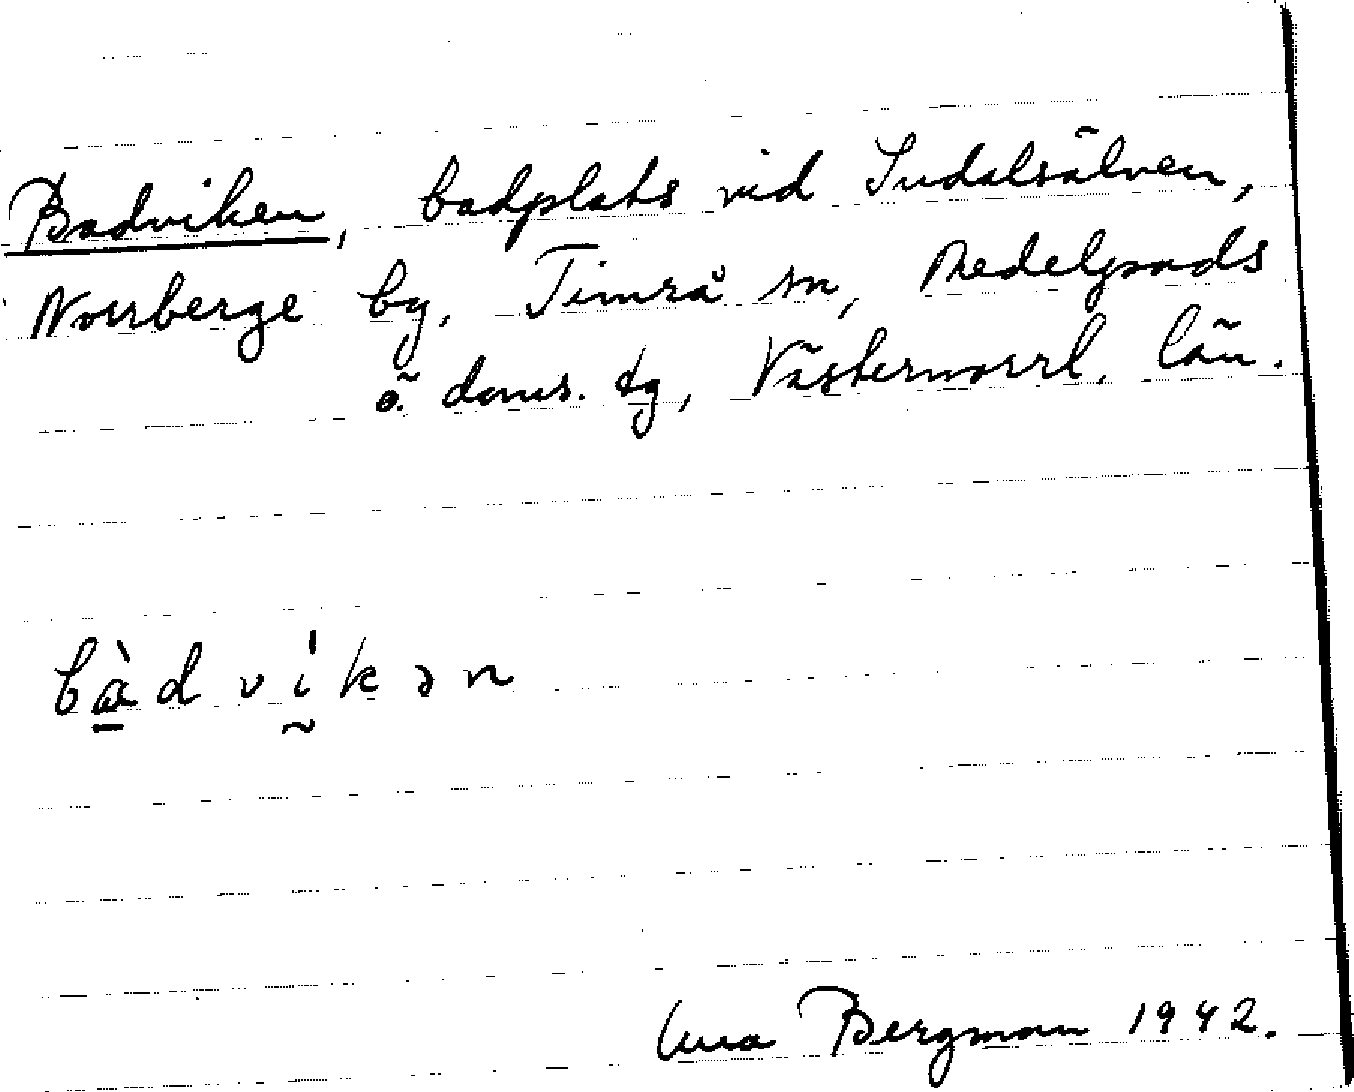 Badviken, badplats vid Indalsälven,
Norrberge by, Timrå sn, Medelpads
ö. doms. tg, Västernorrl. län.
bàdvíkən
Bergman 1942.